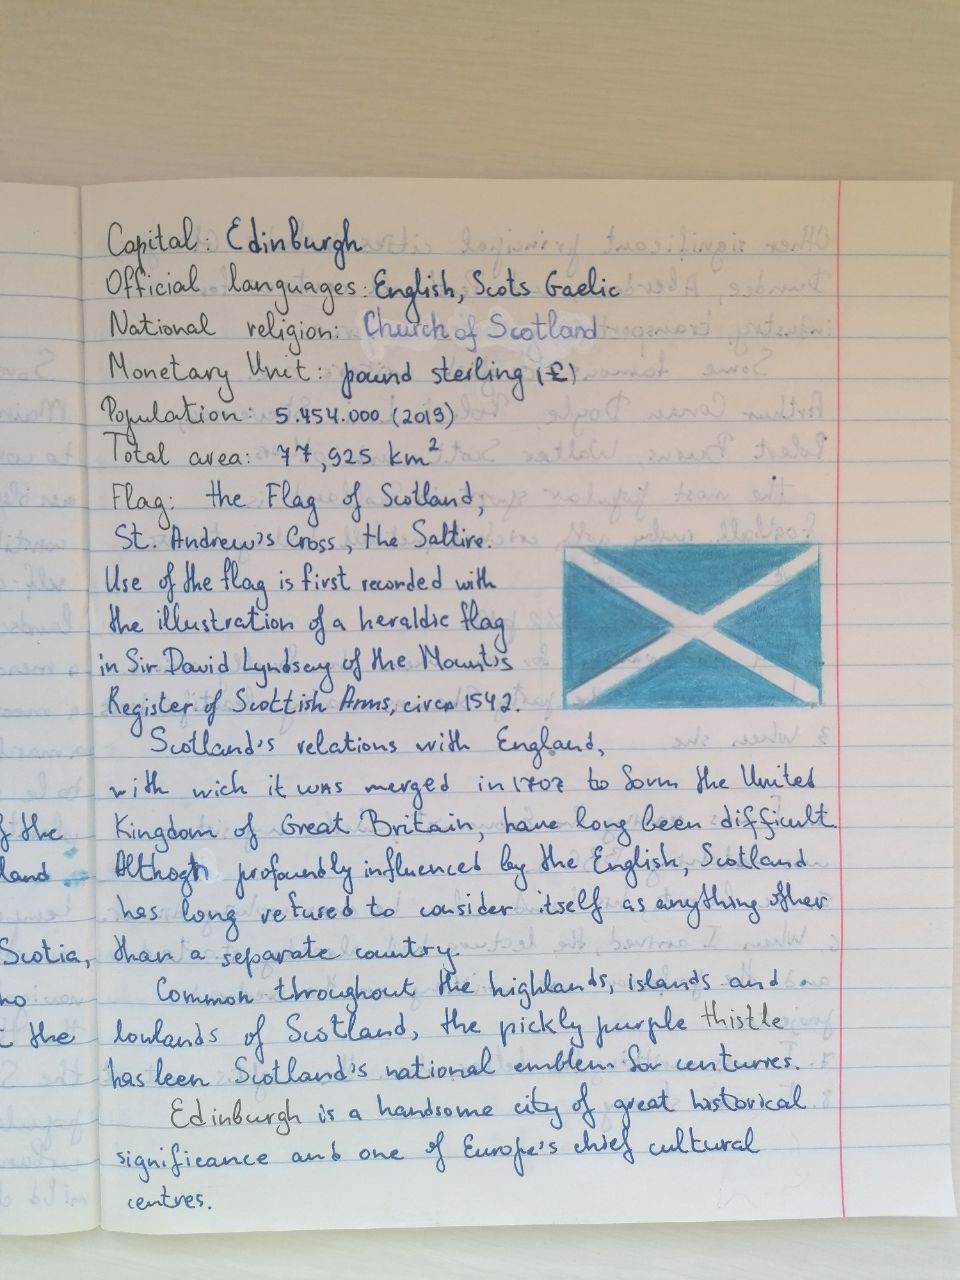 Capital: Edinburgh
Official languages: English, Scots Gaelic
National religion: Church of Scotland
Monetary Unit: pound sterling (£)
Population: 5.454.000 (2019)
Total area: 77,925 km²
Flag: the Flag of Scotland,
St. Andrew's Cross, the Saltire.
Use of the flag is first recorded with
the illustration of a heraldic flag
in Sir David Lyndsey of the Mount's
Register of Scottish Arms, circa 1542.
Scotland's relations with England,
with wich it was merged in 1707 to form the United
Kingdom of Great Britain, have long been difficult.
f the
Althogh profoundly influenced by the English, Scotland
land
has long refused to consider itself as anything other
than a separate country.
Scotia,
Common throughout the highlands, islands and
ho
lowlands of Scotland, the pickly purple thistle
t the
has been Scotland's national emblem for centuries.
Edinburgh is a handsome city of great historical
significance and one of Europe's chief cultural
centres.